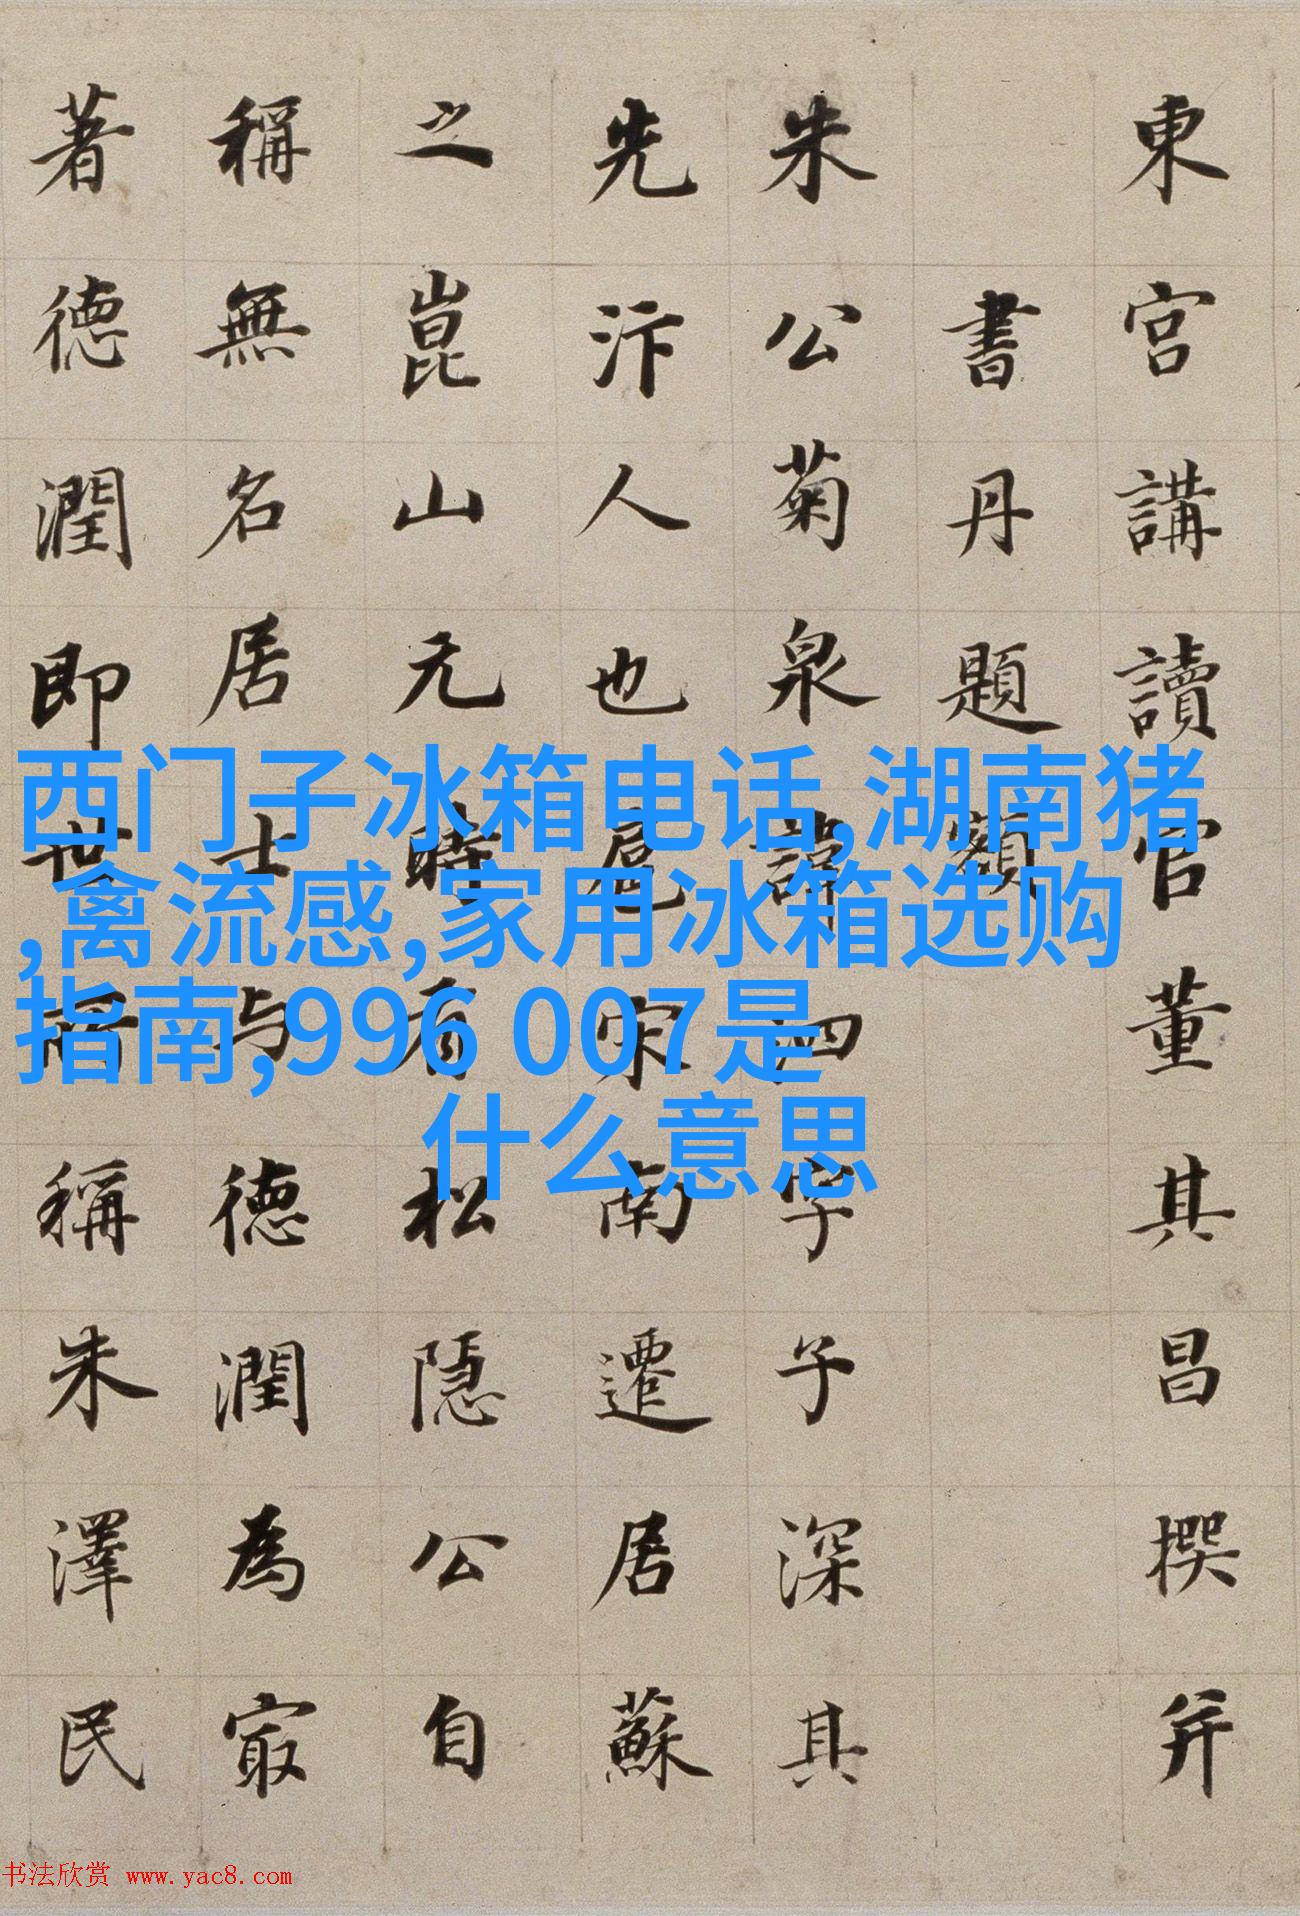 東宮講讀官董其昌撰并
書丹題額
朱公菊泉諱泗字子深其
先汴人也扈宋南遷居蘇
之崑山元時有松隱公自
稱無名居士与德潤為㝡
著德潤即世所稱朱澤民
西门子冰箱电话,湖南猪
,禽流感,家用冰箱选购
指南,996 007是
什么意思
书法欣赏 www.yac8.com